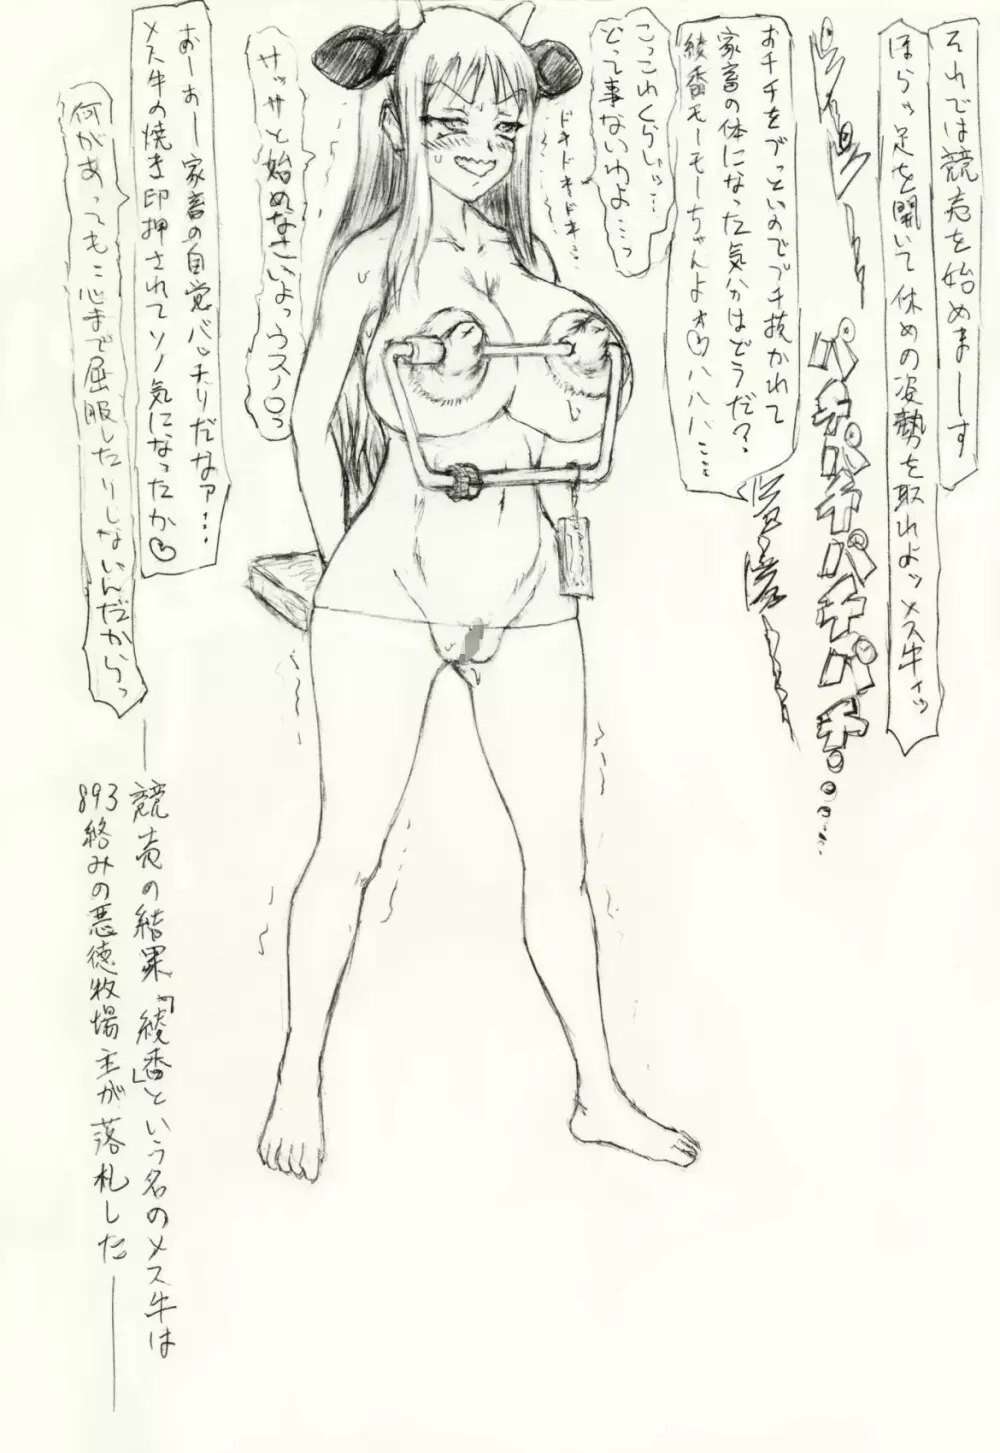 それでは競売を始めまーーす
ほらッ足を開いて休めの姿勢を取れよッメス牛ィッ
パチパチパチパチパチパチ
おチチをブッといのでブチ抜かれて
家畜の体になった気分はどうだ？
綾香モーモーちゃんよォ♡ハハハ…
こっこれくらいっ…
どって事ないわよ…っ
ドキドキドキドキ…
サッサと始めなさいよっ
おーおー家畜の自覚バッチリだなァ…
メス牛の焼き印押されてソノ気になったか♡
何があっても心まで屈服したりしないんだからっ
競売の結果「綾香」という名のメス牛は
893絡みの悪徳牧場主が落札した